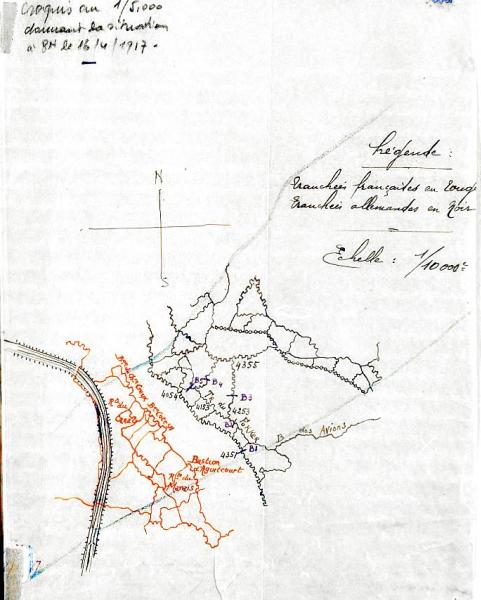 Croquis au 1/5,000
donnant la situation
à 8H le 16/4/1917.
Légende :
Tranchées françaises en rouge
Tranchées allemandes en Noir
Echelle : 1/10000e
N
S
4355
B5
B4
4054
4153
Tr. de
B3
4253
B2
B des Avions
4351
B1
du
Bastion
d'Agincourt
du